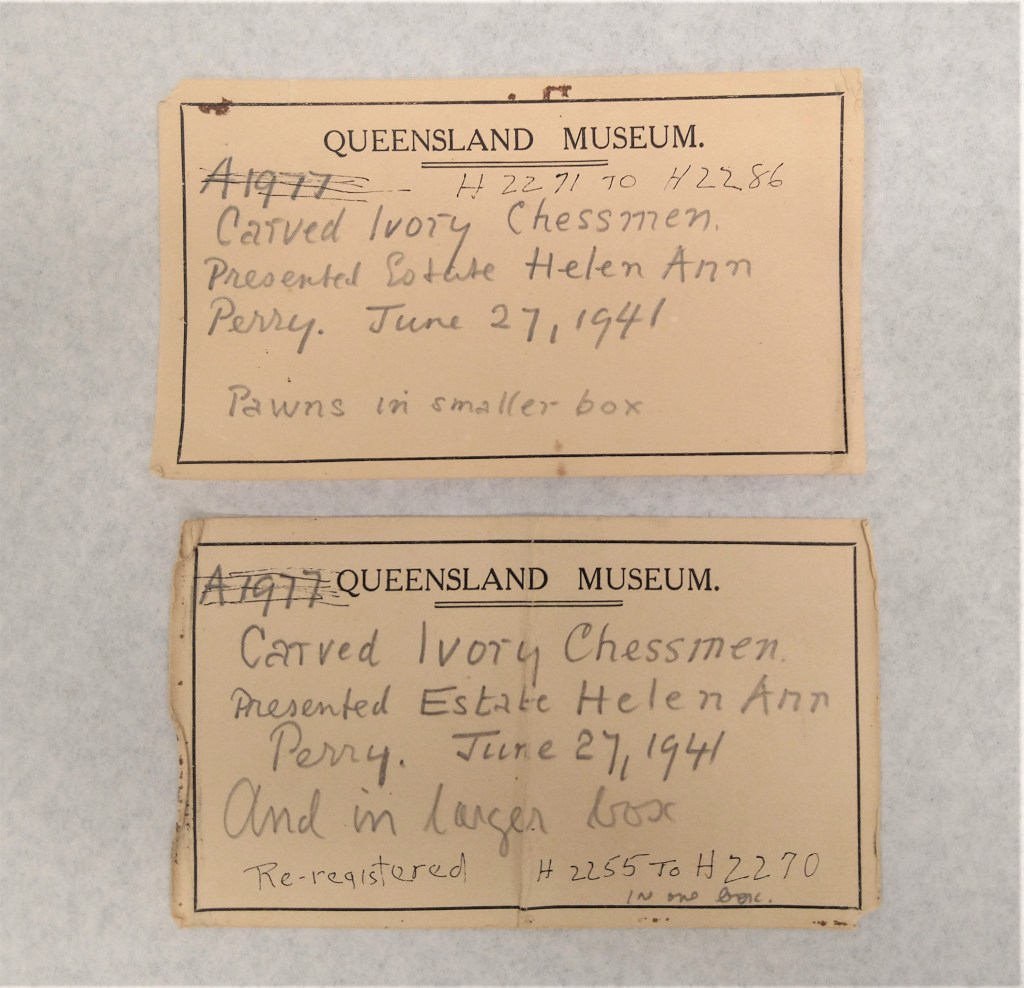 QUEENSLAND MUSEUM.
A1977 H 2271 TO H2286
Carved Ivory Chessmen.
Presented Estate Helen Ann
Perry. June 27, 1941
Pawns in smaller box
A1977 QUEENSLAND MUSEUM.
Carved Ivory Chessmen.
Presented Estate Helen Ann
Perry. June 27, 1941
And in larger box
Re-registered H 2255 To H2270
in one box.